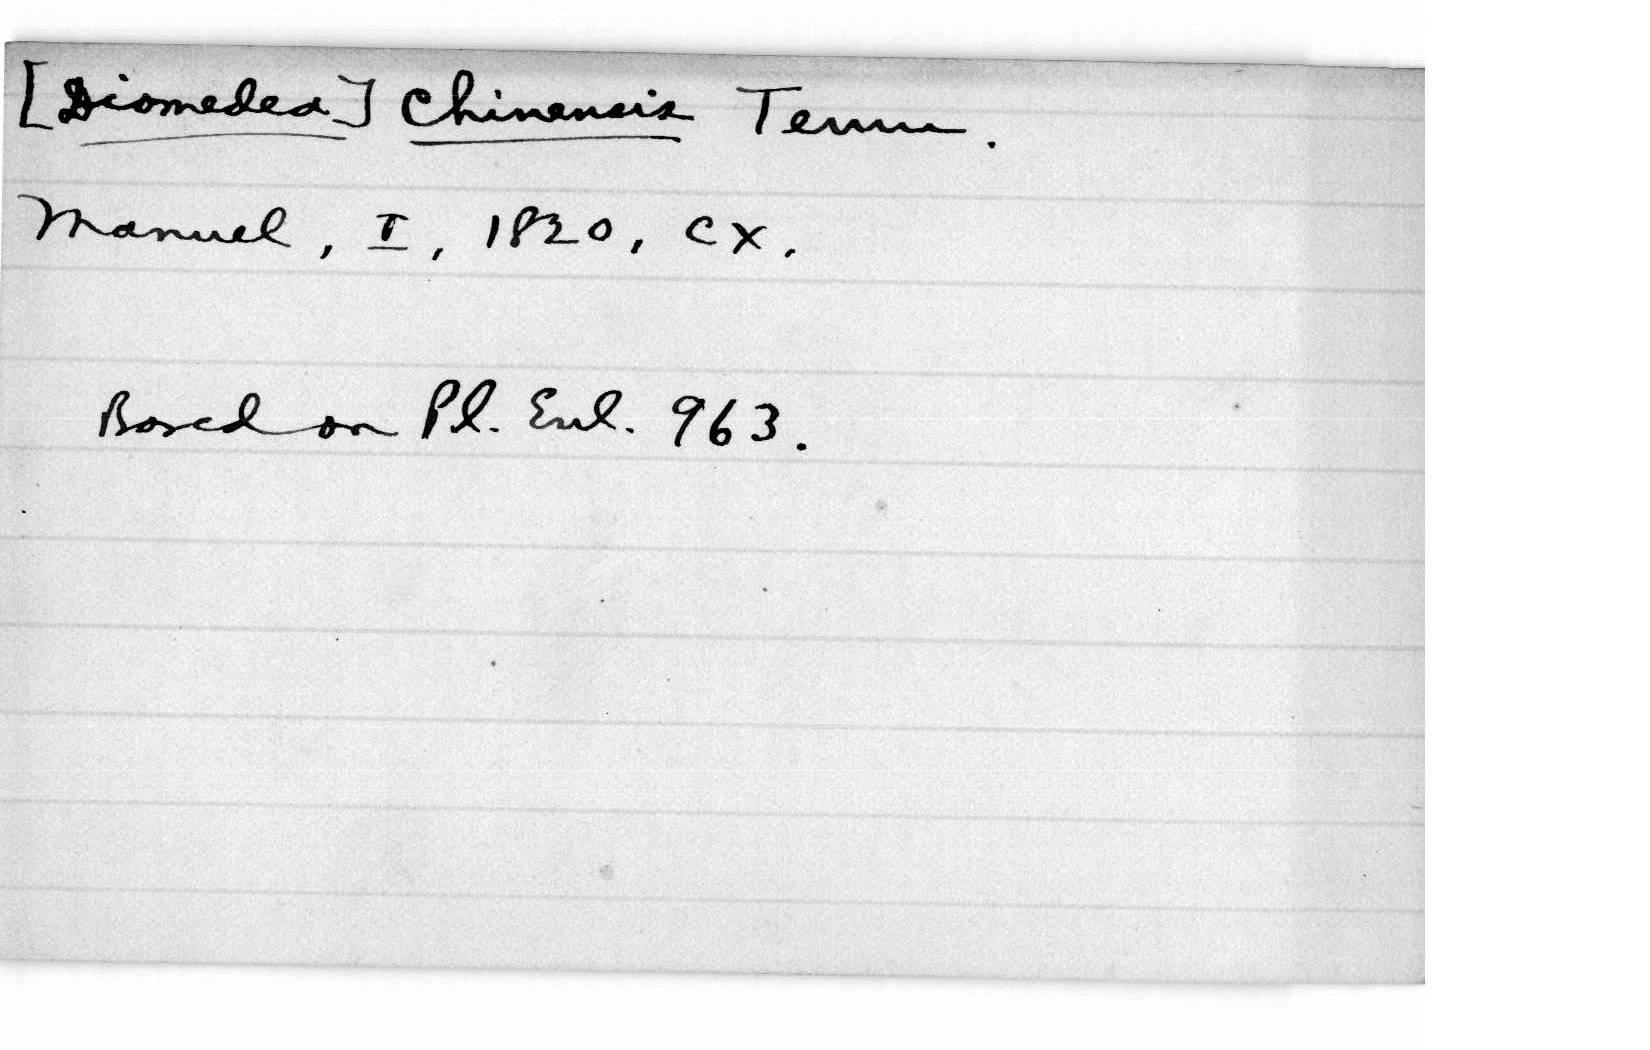 [Diomedea] Chinensis Temm.
Manuel, I, 1820, CX.
Based on Pl. Enl. 963.